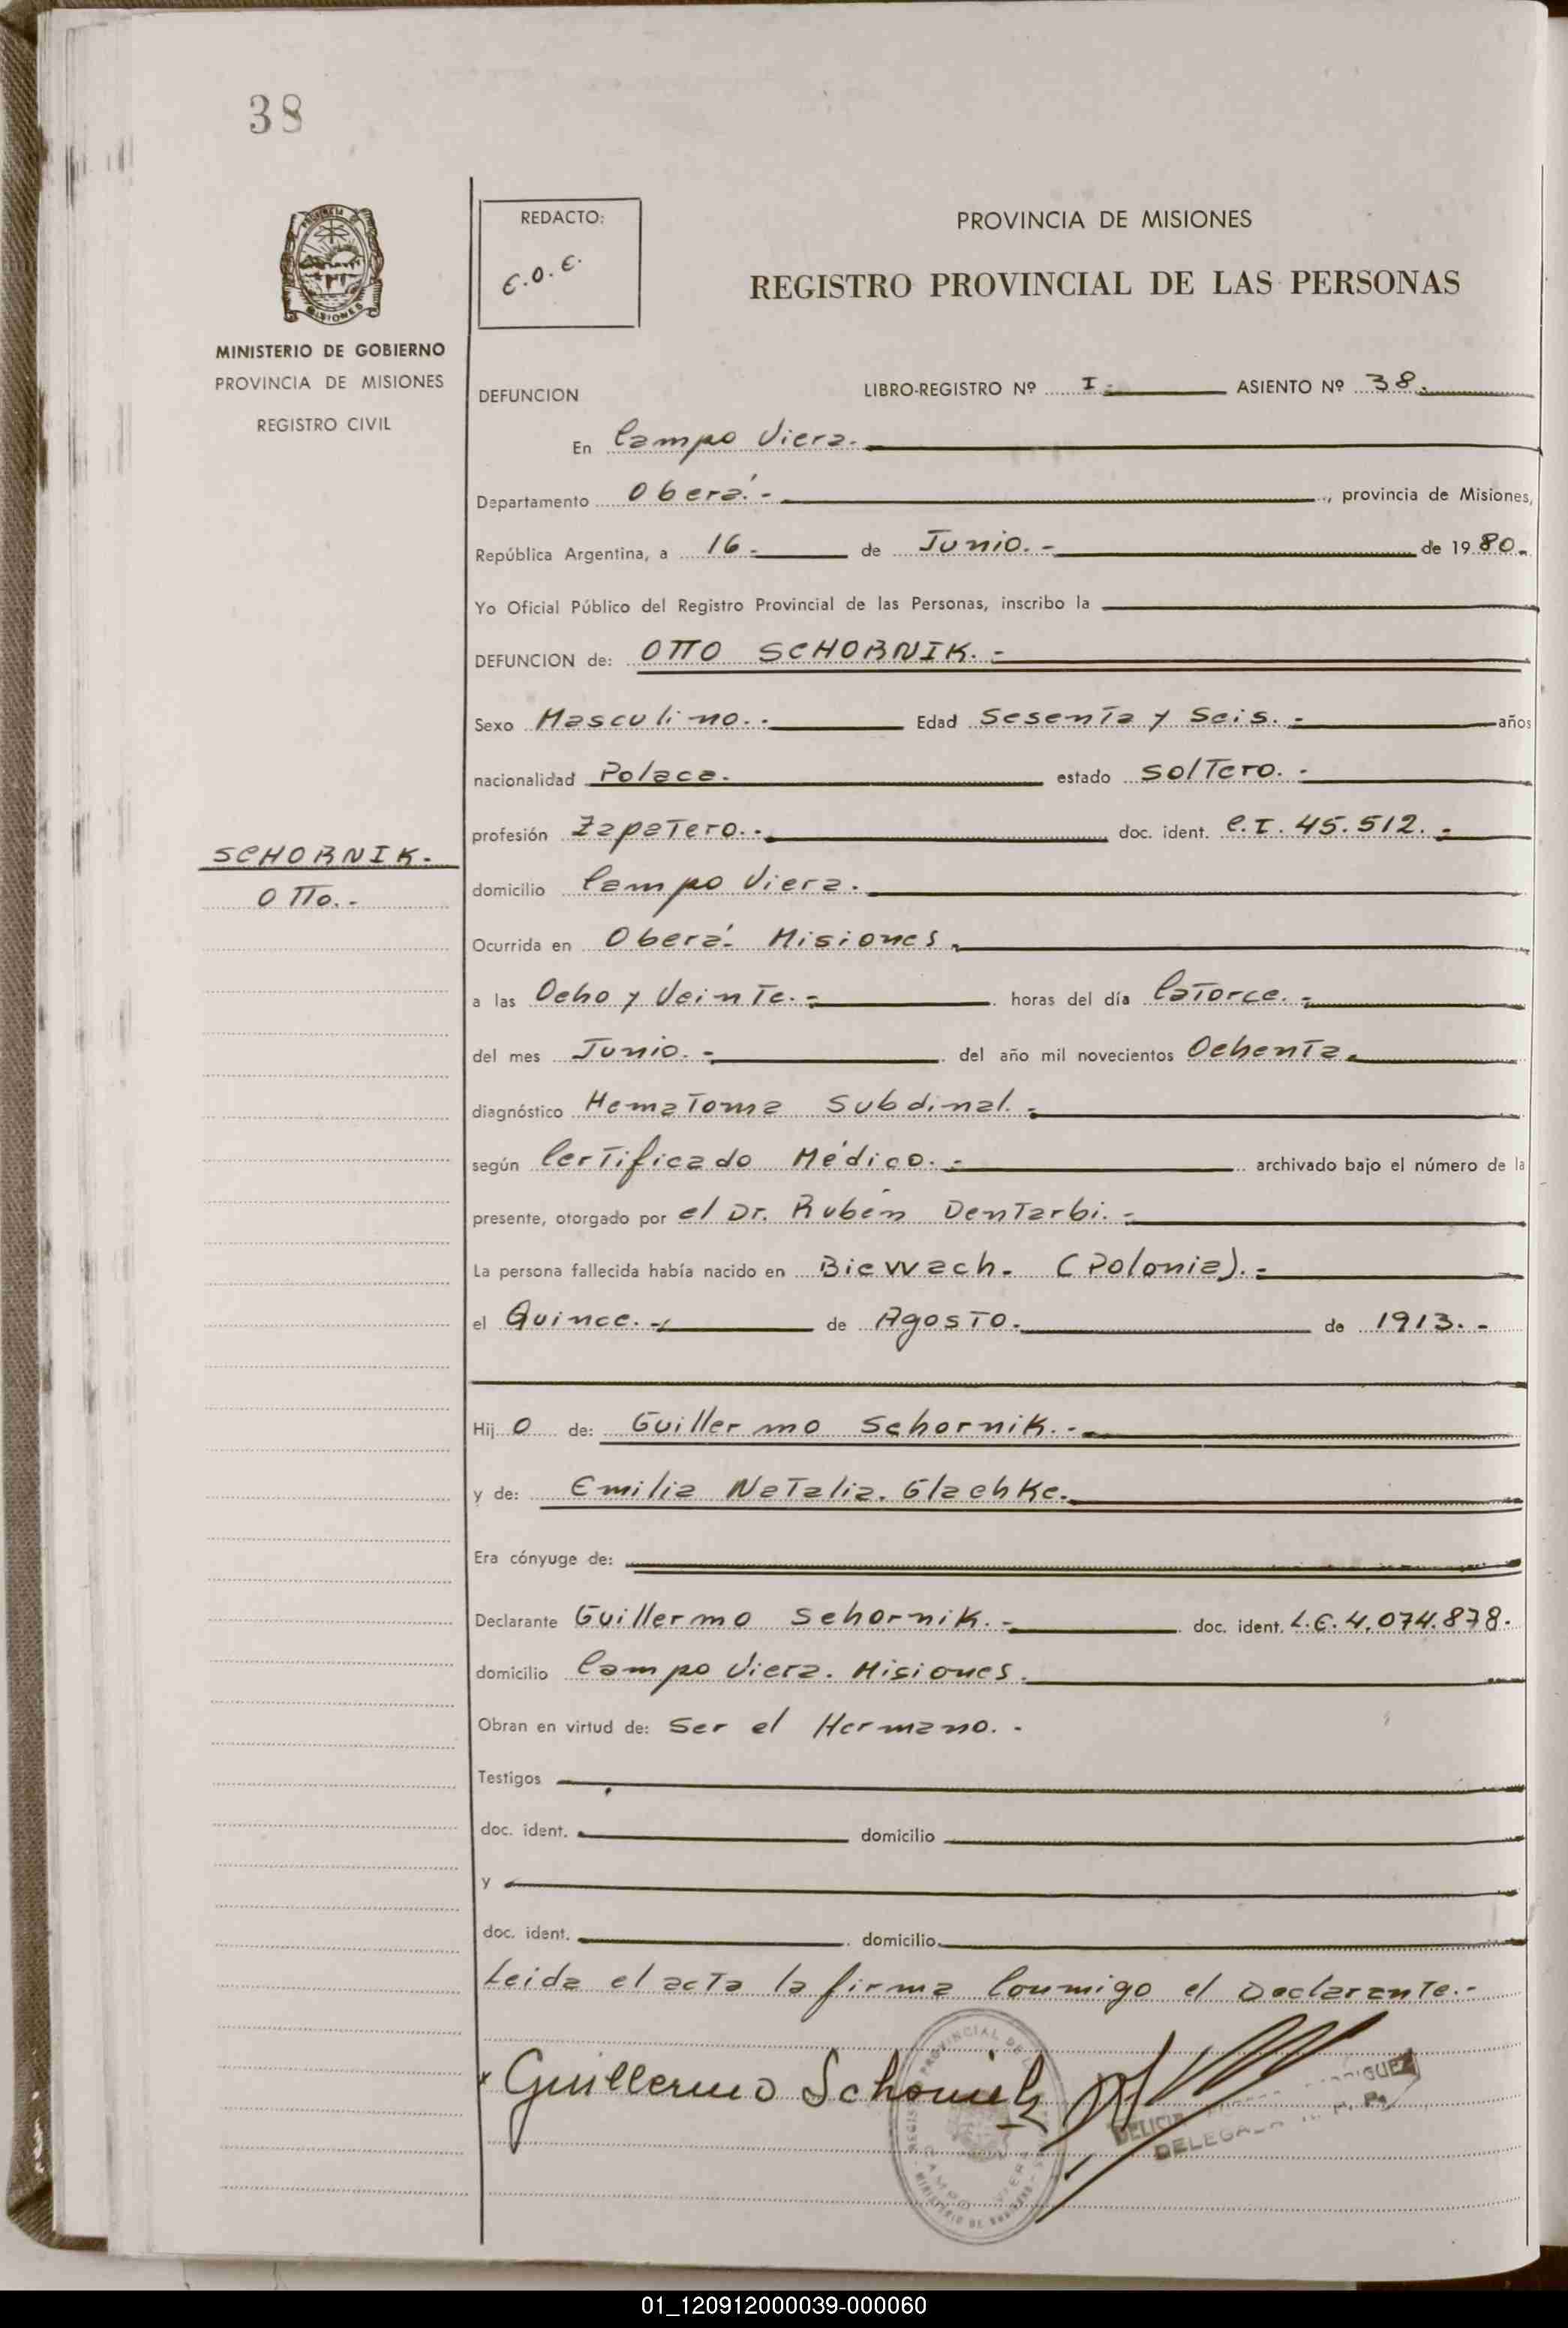 38
PROVINCIA DE MISIONES
MINISTERIO DE GOBIERNO
PROVINCIA DE MISIONES
REGISTRO CIVIL
REDACTO:
E.O.E.
PROVINCIA DE MISIONES
REGISTRO PROVINCIAL DE LAS PERSONAS
DEFUNCION LIBRO-REGISTRO Nº I.- ASIENTO Nº 38.
En Campo Viera.
Departamento Oberá.- , provincia de Misiones,
República Argentina, a 16.- de Junio.- de 1980.-
Yo Oficial Público del Registro Provincial de las Personas, inscribo la
DEFUNCION de: OTTO SCHORNIK.-
Sexo Masculino.- Edad Sesenta y Seis.- años
nacionalidad Polaca. estado Soltero.-
profesión Zapatero.- doc. ident. C.I. 45.512.-
SCHORNIK.
OTTO.-
domicilio Campo Viera.
Ocurrida en Oberá. Misiones.
a las Ocho y Veinte.- horas del día Catorce.-
del mes Junio.- del año mil novecientos Ochenta.
diagnóstico Hematoma Subdinal.-
según Certificado Médico.- archivado bajo el número de la
presente, otorgado por el Dr. Rubén Dentarbi.-
La persona fallecida había nacido en Biewach. (Polonia).-
el Quince.- de Agosto. de 1913.-
Hij O de: Guillermo Schornik.-
y de: Emilia Natalia. Glachke.
Era cónyuge de:
Declarante Guillermo Schornik.- doc. ident. L.E. 4.074.878.
domicilio Campo Viera. Misiones.
Obran en virtud de: Ser el Hermano.-
Testigos
doc. ident. domicilio
y
doc. ident. domicilio
Leida el acta la firma Conmigo el Declarante.-
Guillermo Schornik
01_120912000039-000060